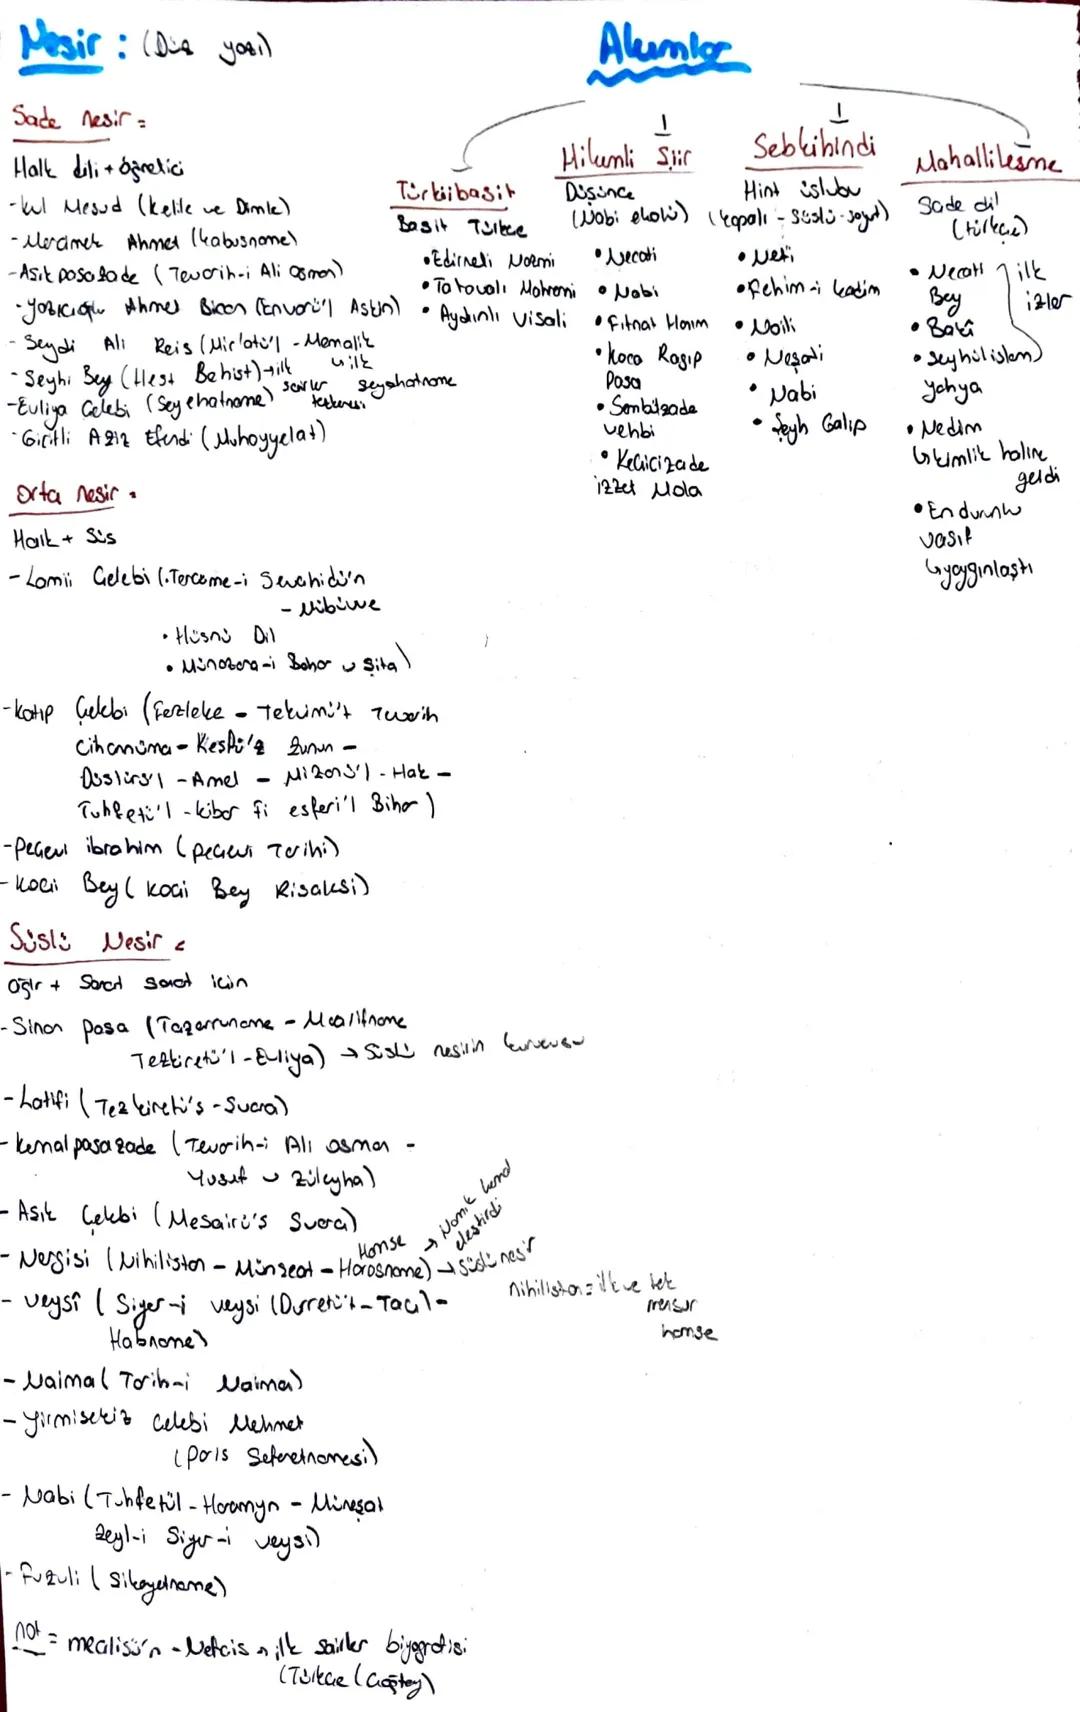 Nesir : (Düz yazı)
Sade nesir =
Halk dili + öğretici
- Kul Mesud (Kelile ve Dimle)
- Mercimek Ahmet (Kabusname)
- Aşık paşa zade (Tevarih-i Ali Osman)
- Yazıcıoğlu Ahmet Bican (Envarü'l Aşıkın)
- Seydi Ali Reis (Mir'atü'l - Memalik
↳ ilk seyahatname
- Sehi Bey (Heşt Behişt) → ilk
şairler tezkeresi
- Evliya Çelebi (Seyehatname)
- Giritli Aziz Efendi (Muhayyelat)
Orta nesir =
Halk + Süs
- Lamii Çelebi (. Terceme-i Şevahidü'n
- Nübüvve
• Hüsnü Dil
• Münazara-i Bahar u Şita)
- Katip Çelebi (Fezleke - Tekvimü't Tevarih
Cihannüma - Keşfü'z Zunun -
Düstürü'l - Amel - Mizanü'l - Hak -
Tuhfetü'l - kibar fi esferi'l Bihar)
- Peçevi ibrahim (Peçevi Tarihi)
- Koçi Bey (Koçi Bey Risalesi)
Süslü Nesir =
Ağır + Sanat sanat için
- Sinan paşa (Tazarruname - Maarifname
Tezkiretü'l - Evliya) → Süslü nesirin kurucusu
- Latifi (Tezkiretü's - Şuara)
- Kemalpaşazade (Tevarih-i Ali Osman -
Yusuf u Züleyha)
- Aşık Çelebi (Meşairü's Şuara)
- Nergisi (Nihilistan - Münşeat - Horosname) → Süslü nesir
Hamse
→ Namık Kemal
eleştirdi
Nihilistan = ilk ve tek
mensur
hamse
- Veysî (Siyer-i veysi (Dürretü't - Tacı) -
Habname)
- Naima (Tarih-i Naima)
- Yirmisekiz Çelebi Mehmet
(Paris Sefaretnamesi)
- Nabi (Tuhfetül - Haramyn - Münşeat
Zeyl-i Siyer-i veysi)
- Fuzuli (Şikayetname)
not = mecalisü'n - Nefais → ilk şairler biyografisi
(Türkçe (Çağatay)
Akımlar
Türkiibasit
Basit Türkçe
• Edirneli Nazmi
• Tatavalı Mahremi
• Aydınlı Visali
Hikemli Şiir
Düşünce
(Nabi ekolü)
• Necati
• Nabi
• Fıtnat Hanım
• Koca Ragıp
Paşa
• Sünbülzade
vehbi
• Keçicizade
izzet Mola
Sebkihindi
Hint üslubu
(kapalı - Süslü - soyut)
• Nefi
• Fehim-i kadim
• Naili
• Neşati
• Nabi
• Şeyh Galip
Mahallileşme
Sade dil
(türkçe)
• Necati
Bey
• Bakî
• Şeyhülislam
yahya
ilk
izler
• Nedim
↳ kimlik haline
geldi
• Endurunlu
vasıf
↳ yaygınlaştı